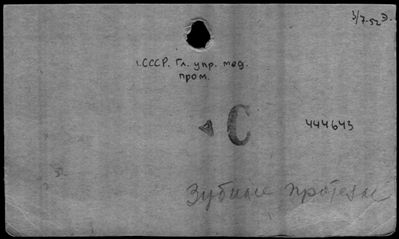 3/7-52 э.
1.СССР. Гл. упр. мед.
пром.
С
444643
Зубные протезы